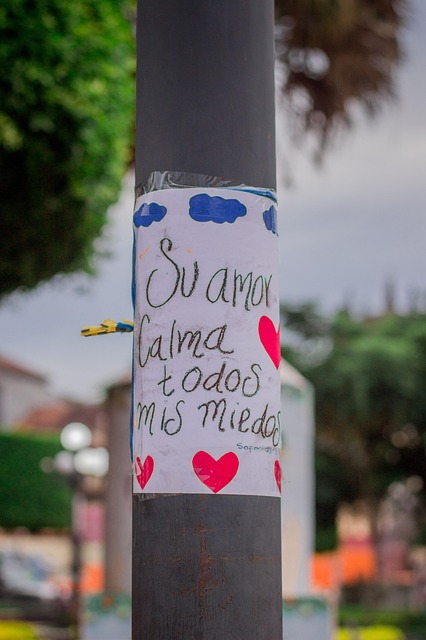 Su amor
Calma
todos
mis miedos